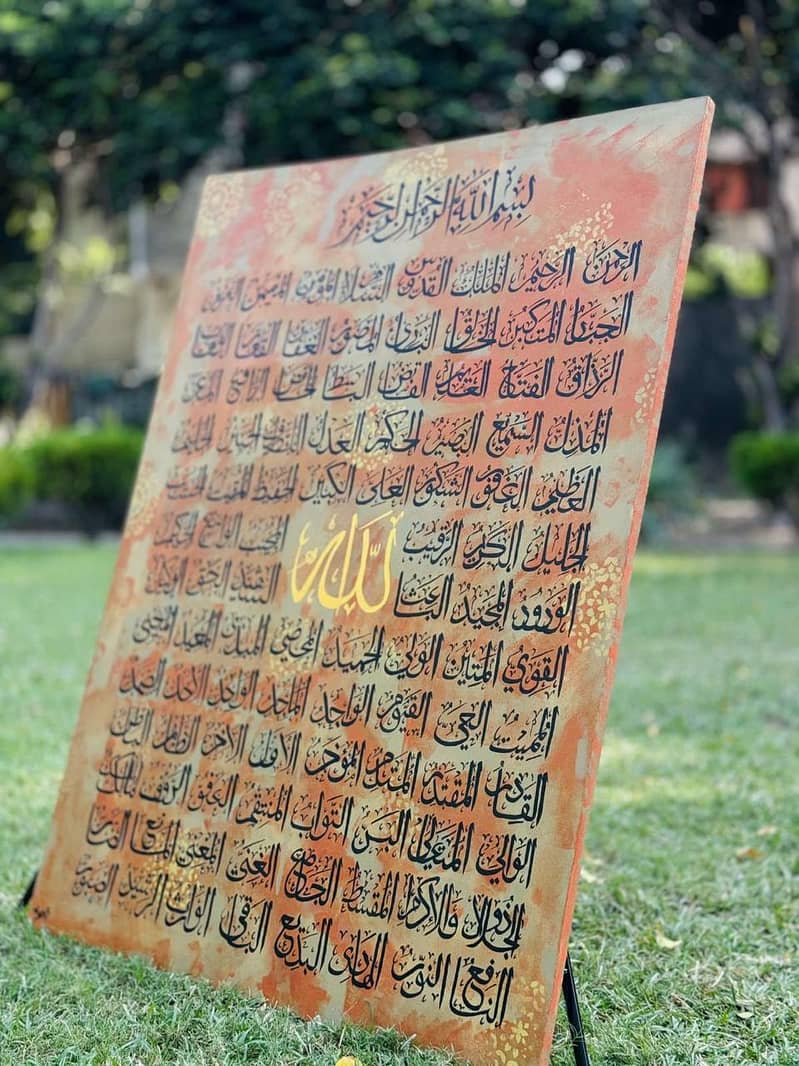 بسم الله الرحمن الرحيم
الرحمن الرحيم الملك القدوس السلام المؤمن المهيمن العزيز
الجبار المتكبر الخالق البارئ المصور الغفار القهار الوهاب
الرزاق الفتاح القابض الباسط الخافض الرافع المعز
المذل السميع البصير الحكم العدل اللطيف الخبير الحليم
العظيم الغفور الشكور العلي الكبير الحفيظ المقيت الحسيب
الجليل الكريم الرقيب الله المجيب الواسع الحكيم
الودود المجيد الباعث الشهيد الحق الوكيل
القوي المتين الولي الحميد المحصي المبدئ المعيد المحيي
المميت الحي القيوم الواجد الماجد الواحد الاحد الصمد
القادر المقتدر المقدم المؤخر الاول الاخر الظاهر الباطن
الوالي المتعالي البر التواب المنتقم العفو الرؤف مالك الملك
ذوالجلال والاكرام المقسط الجامع الغني المغني المانع الضار
النافع النور الهادي البديع الباقي الوارث الرشيد الصبور